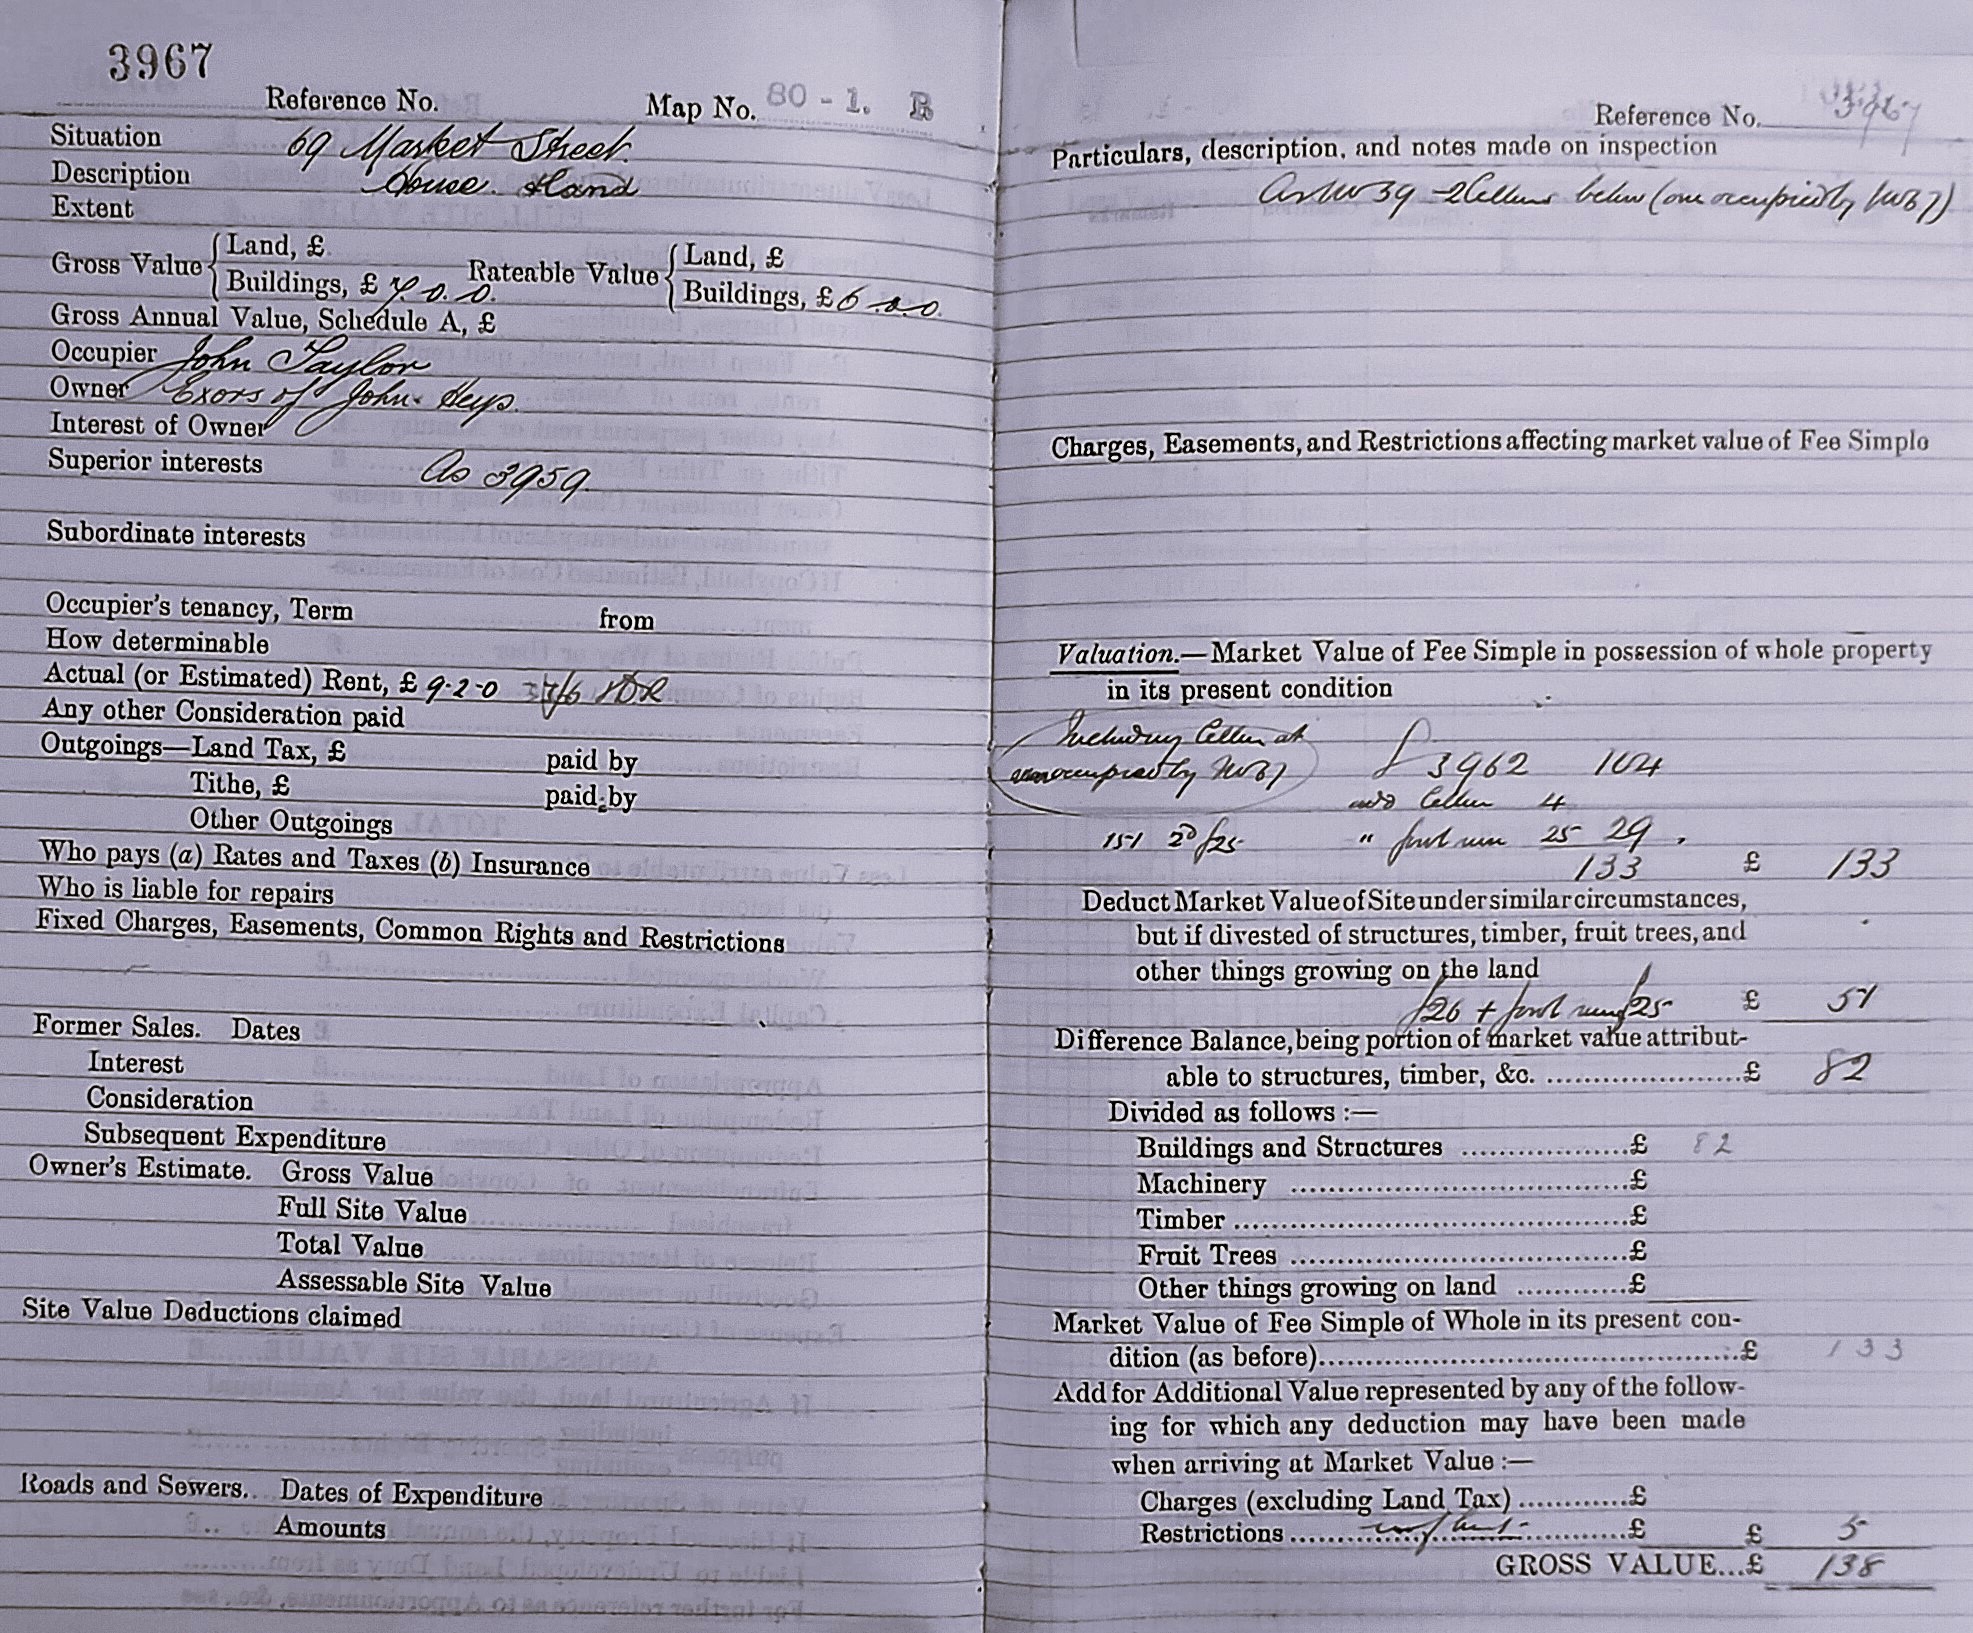 3967
Reference No. Map No. 80 - 1. B
Situation 69 Market Street.
Description House & land
Extent
Gross Value { Land, £
Buildings, £ 7. 0. 0. Rateable Value { Land, £
Buildings, £ 6. 0. 0.
Gross Annual Value, Schedule A, £
Occupier John Taylor
Owner Exors of John Heys.
Interest of Owner
Superior interests As 3959.
Subordinate interests
Occupier's tenancy, Term from
How determinable
Actual (or Estimated) Rent, £ 9-2-0 3/6
Any other Consideration paid
Outgoings—Land Tax, £ paid by
Tithe, £ paid by
Other Outgoings
Who pays (a) Rates and Taxes (b) Insurance
Who is liable for repairs
Fixed Charges, Easements, Common Rights and Restrictions
Former Sales. Dates
Interest
Consideration
Subsequent Expenditure
Owner's Estimate. Gross Value
Full Site Value
Total Value
Assessable Site Value
Site Value Deductions claimed
Roads and Sewers. Dates of Expenditure
Amounts
Reference No. 3967
Particulars, description, and notes made on inspection
2 Cellars below (one occupied by
Charges, Easements, and Restrictions affecting market value of Fee Simple
Valuation.—Market Value of Fee Simple in possession of whole property
in its present condition
Including Cellar
occupied by £ 3962 104
Cellar 4
151 " 25 29
133 £ 133
Deduct Market Value of Site under similar circumstances,
but if divested of structures, timber, fruit trees, and
other things growing on the land
£26 + £25 £ 51
Difference Balance, being portion of market value attribut-
able to structures, timber, &c. £ 82
Divided as follows :—
Buildings and Structures £ 82
Machinery £
Timber £
Fruit Trees £
Other things growing on land £
Market Value of Fee Simple of Whole in its present con-
dition (as before) £ 133
Add for Additional Value represented by any of the follow-
ing for which any deduction may have been made
when arriving at Market Value :—
Charges (excluding Land Tax) £
Restrictions £ £ 5
GROSS VALUE...£ 138